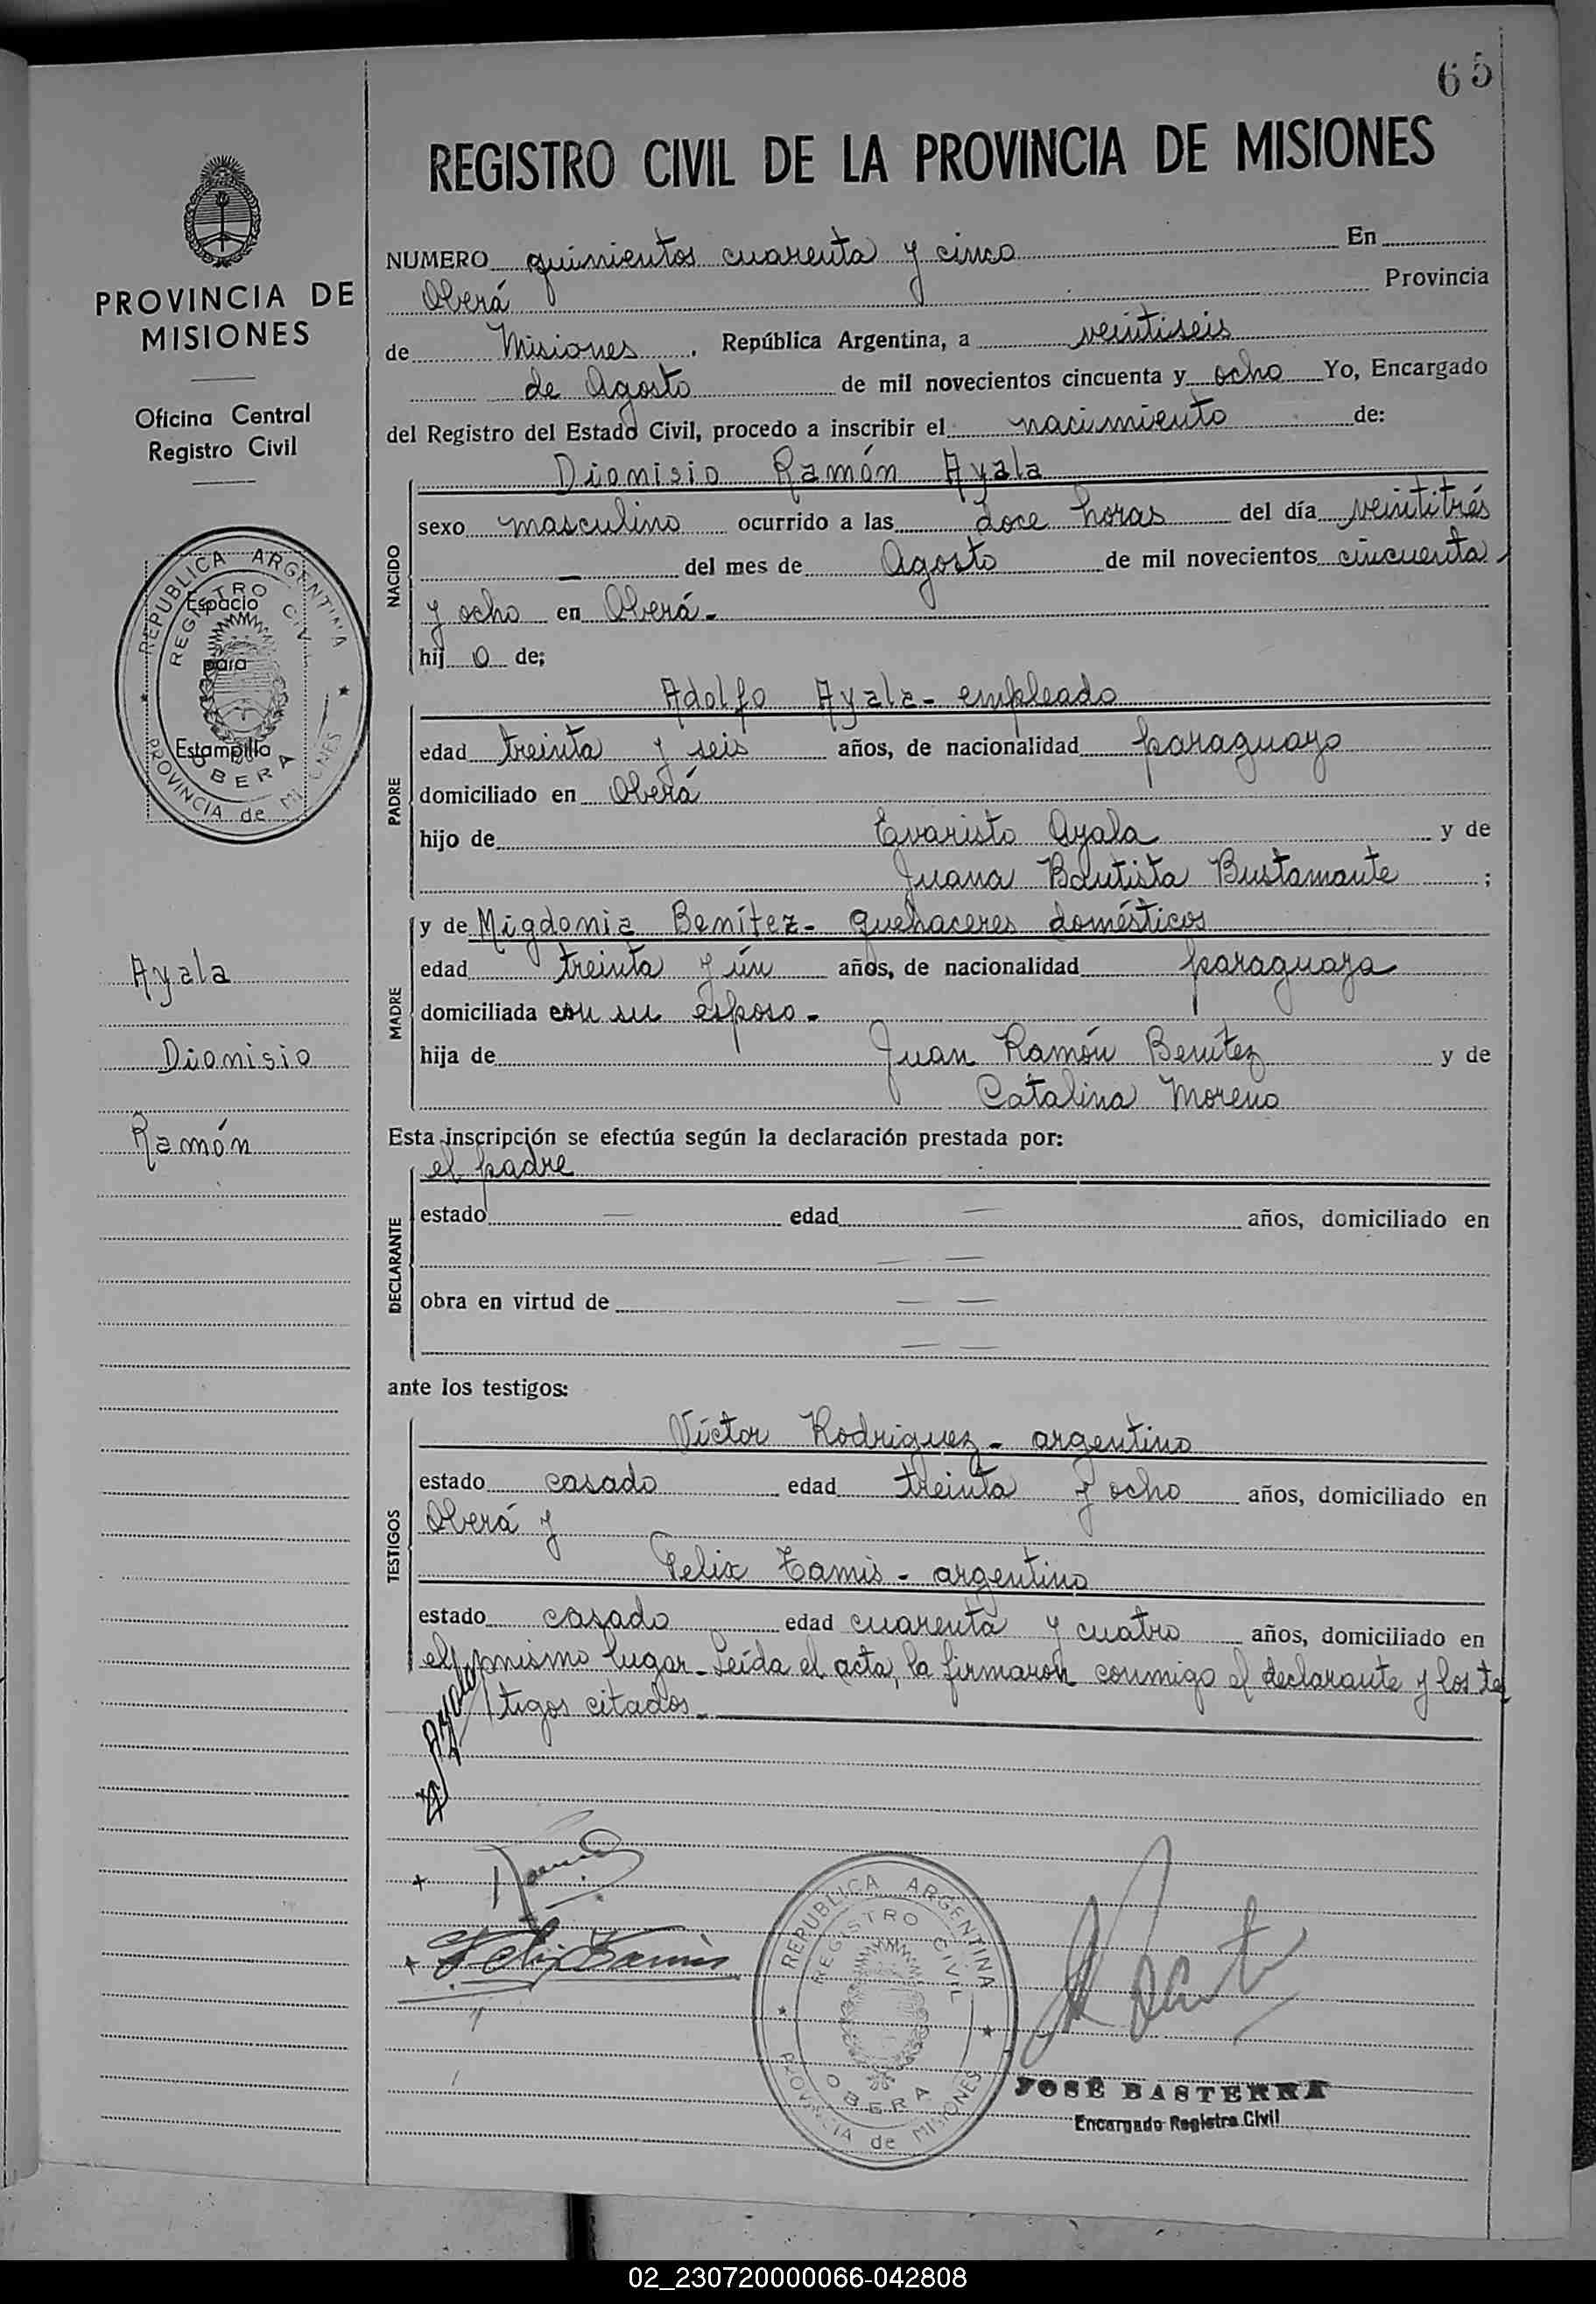 65
REGISTRO CIVIL DE LA PROVINCIA DE MISIONES
PROVINCIA DE
MISIONES
Oficina Central
Registro Civil
REPUBLICA ARGENTINA
REGISTRO CIVIL
Espacio
para
Estampilla
OBERA
PROVINCIA de MISIONES
Ayala
Dionisio
Ramón
NUMERO quinientos cuarenta y cinco En
Oberá Provincia
de Misiones, República Argentina, a veintiseis
de Agosto de mil novecientos cincuenta y ocho Yo, Encargado
del Registro del Estado Civil, procedo a inscribir el nacimiento de:
NACIDO
Dionisio Ramón Ayala
sexo masculino ocurrido a las doce horas del día veintitrés
— del mes de Agosto de mil novecientos cincuenta
y ocho en Oberá.-
hij o de;
PADRE
Adolfo Ayala - empleado
edad treinta y seis años, de nacionalidad paraguayo
domiciliado en Oberá
hijo de Evaristo Ayala y de
Juana Bautista Bustamante ;
MADRE
y de Migdonia Benítez - quehaceres domésticos
edad treinta y ún años, de nacionalidad paraguaya
domiciliada con su esposo.-
hija de Juan Ramón Benitez y de
Catalina Moreno
Esta inscripción se efectúa según la declaración prestada por:
DECLARANTE
el padre
estado — edad — años, domiciliado en
— —
obra en virtud de — —
— —
ante los testigos:
TESTIGOS
Víctor Rodriguez - argentino
estado casado edad treinta y ocho años, domiciliado en
Oberá y
Felix Tamis - argentino
estado casado edad cuarenta y cuatro años, domiciliado en
el mismo lugar - Leída el acta, la firmaron conmigo el declarante y los tes
tigos citados.-
Ayala
Felix Tamis
REPUBLICA ARGENTINA
REGISTRO CIVIL
OBERA
PROVINCIA de MISIONES
JOSÉ BASTERRA
Encargado Registro Civil
02_230720000066-042808